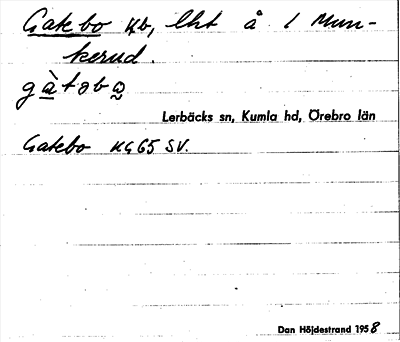 Gatebo Hb, lht å 1 Mun-
kerud.
gàtəbω
Lerbäcks sn, Kumla hd, Örebro län
Gatebo KG65 SV.
Dan Höjdestrand 1958